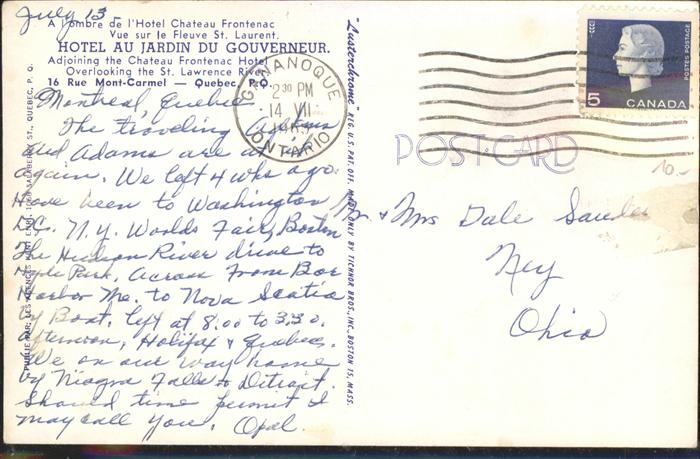 July 13 -
A l'ombre de l'Hotel Chateau Frontenac
Vue sur le Fleuve St. Laurent.
HOTEL AU JARDIN DU GOUVERNEUR.
Adjoining the Chateau Frontenac Hotel
Overlooking the St. Lawrence River
16 Rue Mont-Carmel — Quebec, P.Q.
Montreal, Quebec
The traveling
and Adams are at it
again. We left 4 wks ago.
Have been to Washington
D.C. N.Y. Worlds Fair, Boston
The Hudson River drive to
Hyde Park. Across From Bar
Harbor Me. to Nova Scotia
by Boat. left at 8:00 to 3:30.
afternoon, Halifax & Quebec.
We on our way home
by Niagra Falls & Detroit.
Should time permit I
may call you. Opal.
"Lusterchrome" REG. U.S. PAT. OFF. MADE ONLY BY TICHNOR BROS., INC., BOSTON 15, MASS.
GANANOQUE
2 30 PM
14 VII
ONTARIO
5
CANADA
POSTES POSTAGE
POST CARD
10.-
Mr & Mrs Dale
Ney
Ohio